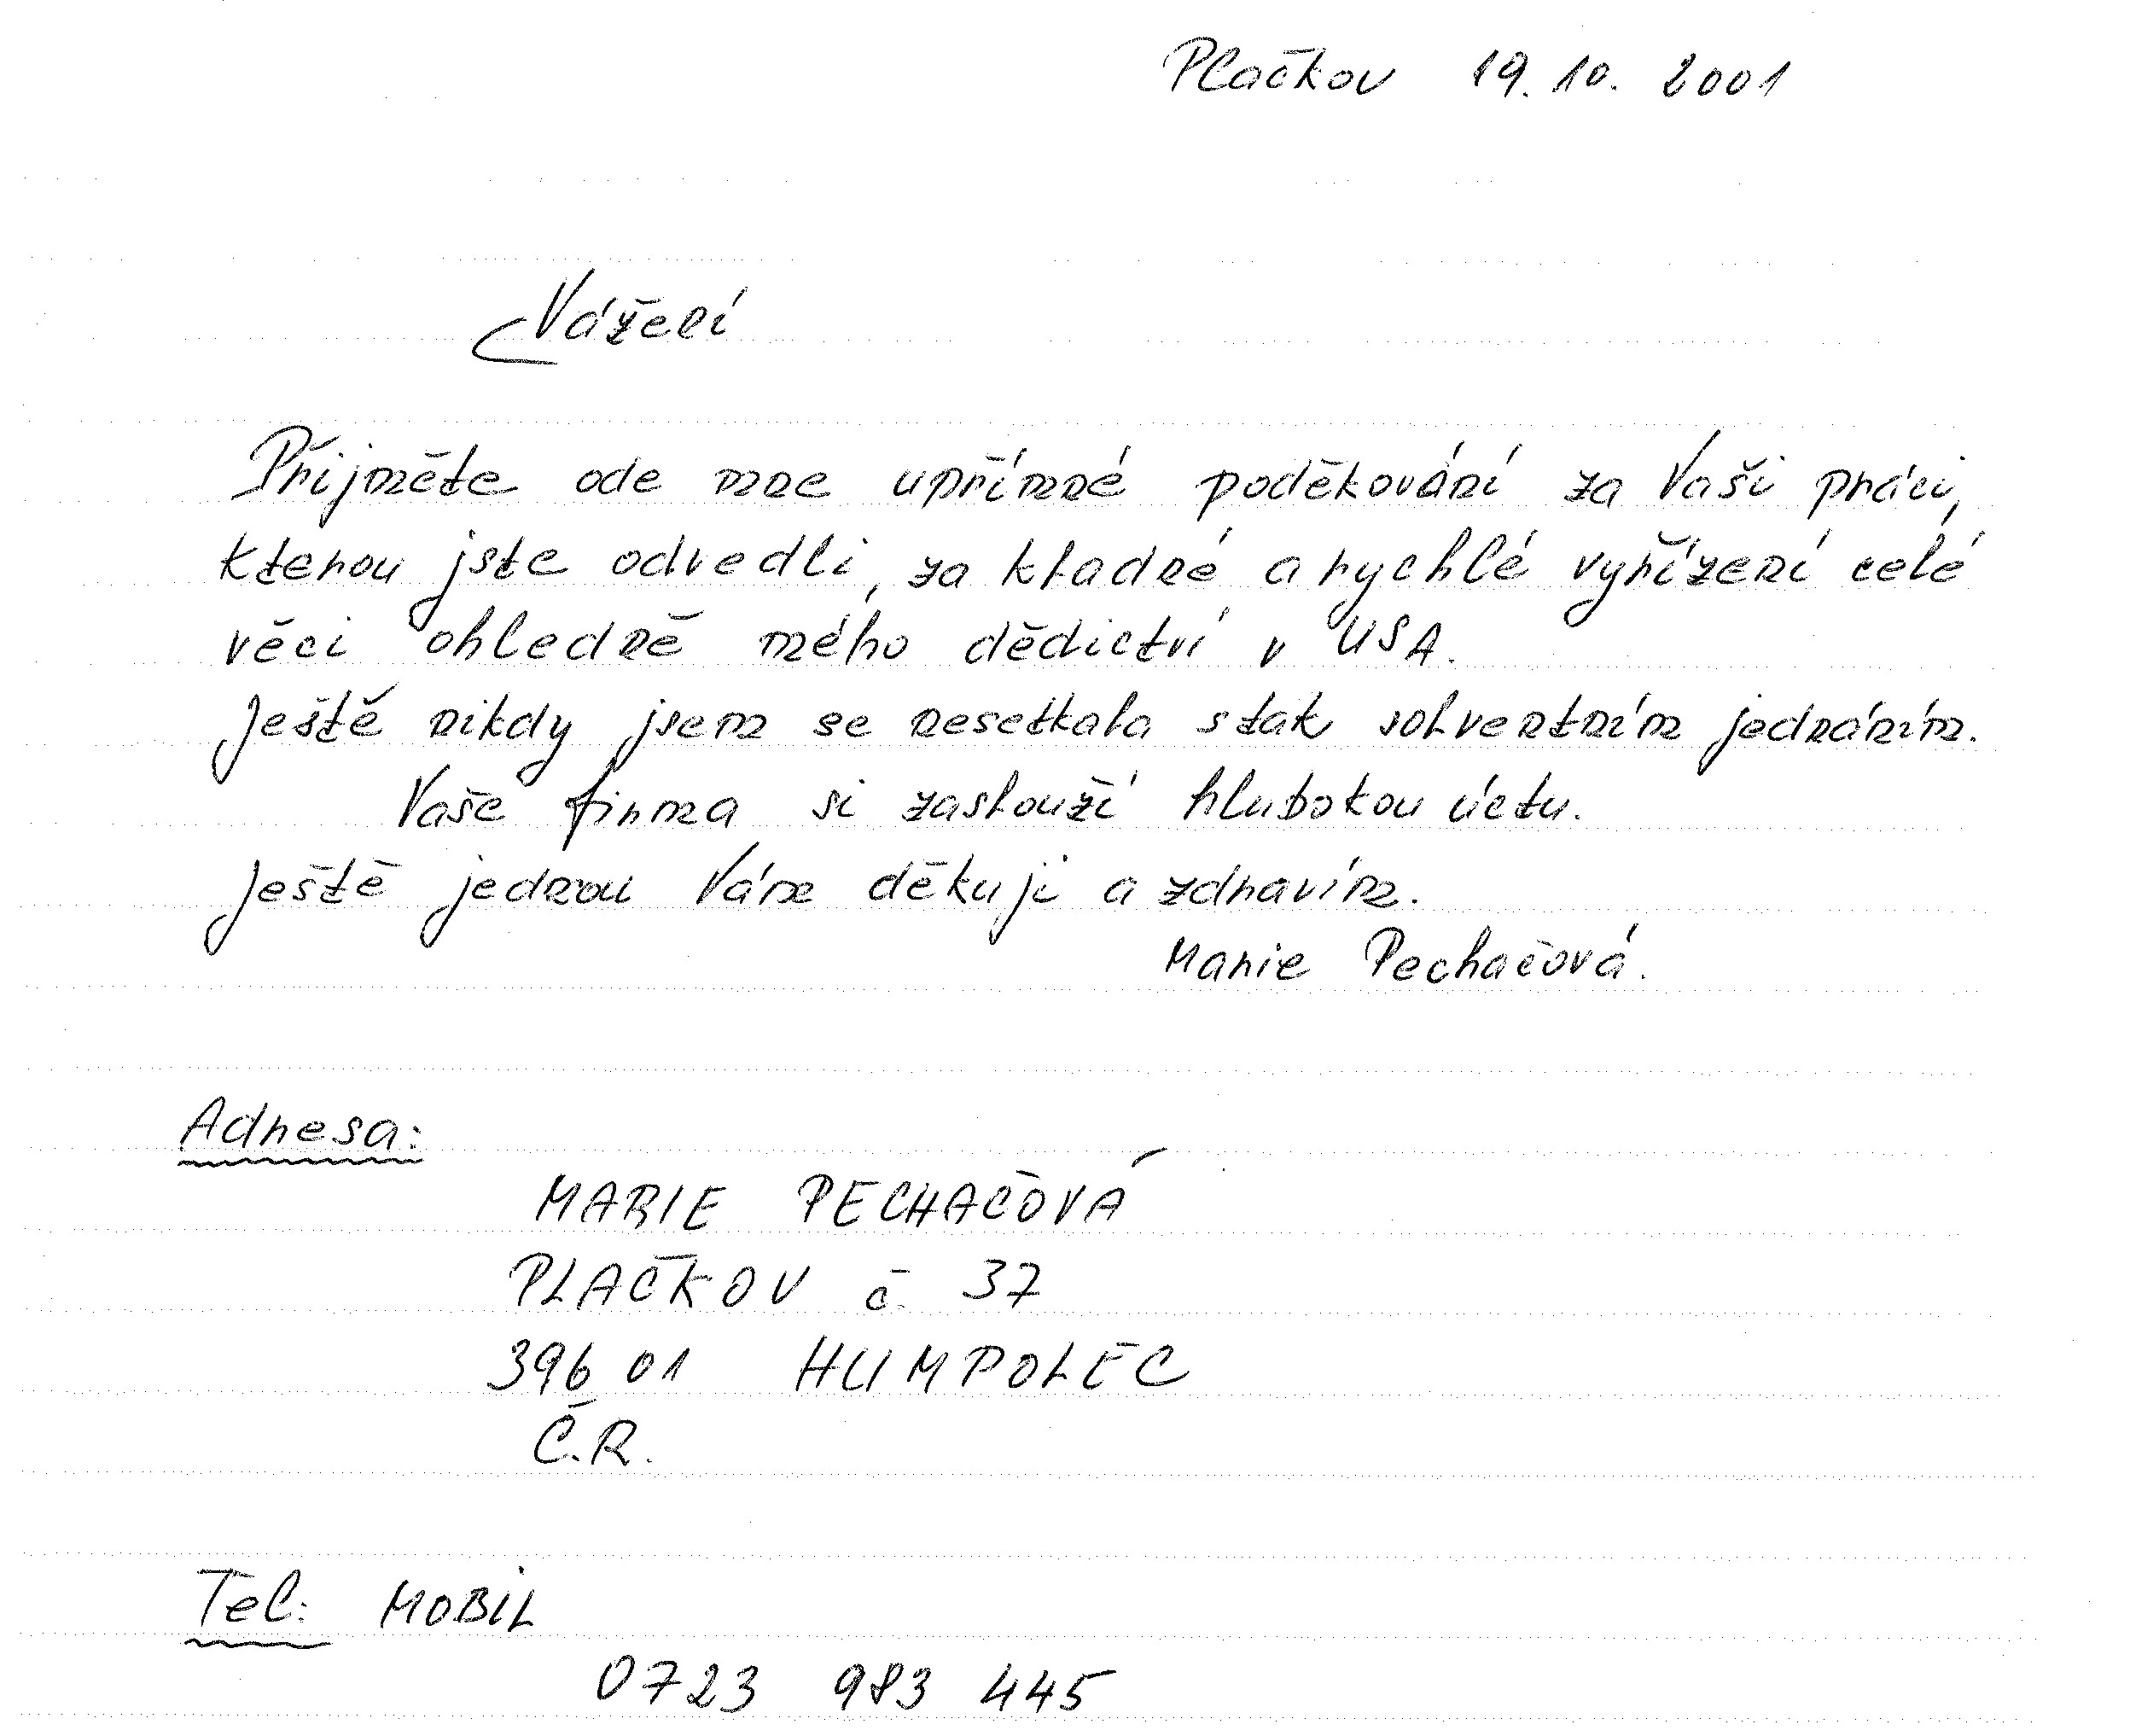 Plačkov 19. 10. 2001
Vážení
Přijměte ode mne upřímné poděkování za Vaši práci,
kterou jste odvedli, za kladné a rychlé vyřízení celé
věci ohledně mého dědictví v USA.
Ještě nikdy jsem se nesetkala s tak solventním jednáním.
Vaše firma si zaslouží hlubokou úctu.
Ještě jednou Vám děkuji a zdravím.
Marie Pechačová.
Adresa:
MARIE PECHAČOVÁ
PLAČKOV č. 37
396 01 HUMPOLEC
Č.R.
Tel: MOBIL
0723 983 445